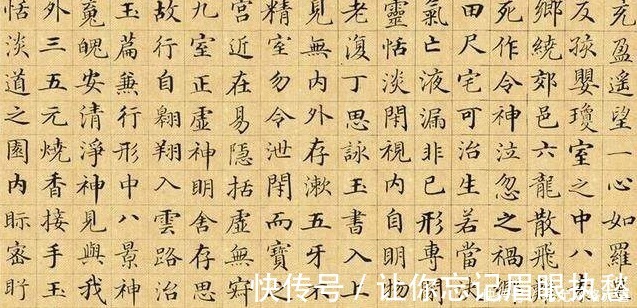 充盈遙望一心如羅
反孩嬰瓊室之中八
鄉繞郊邑六龍散飛
死作令神泣忽之禍
田尺宅可治生若當
氣亡液漏非己形專閉
靈恬淡閑視內自明物
老復丁思詠玉書入上
見無內外存漱五牙不
精室勿令泄閉而寶
宮近在易隱括虛無寂
九室正虛神明舍存思
故行自翱翔入雲路治
玉篇兼行形中八景神
魄安清淨神見與我
外三五元燒香接手玉
恬淡道之園內眎密盱
快传号 / 让你忘记眉眼执愁